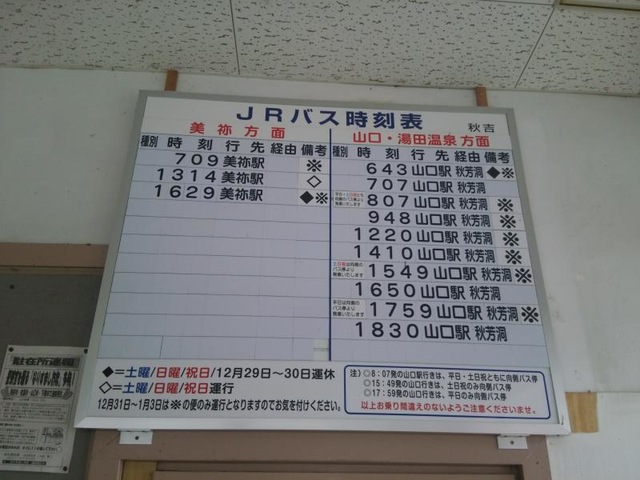 JRバス時刻表 秋吉
美祢方面
種別 時刻 行先 経由 備考
709 美祢駅 ※
1314 美祢駅 ◇
1629 美祢駅 ◆※
山口・湯田温泉方面
種別 時刻 行先 経由 備考
643 山口駅 秋芳洞 ◆※
707 山口駅 秋芳洞
807 山口駅 秋芳洞 ※
948 山口駅 秋芳洞 ※
1220 山口駅 秋芳洞 ※
1410 山口駅 秋芳洞 ※
1549 山口駅 秋芳洞 ※
1650 山口駅 秋芳洞
1759 山口駅 秋芳洞 ※
1830 山口駅 秋芳洞
◆=土曜/日曜/祝日/12月29日～30日運休
◇=土曜/日曜/祝日運行
12月31日～1月3日は※の便のみ運行となりますのでお気を付けください。
注）◎8：07発の山口駅行きは、平日・土日祝ともに向側バス停
◎15：49発の山口駅行きは、土日祝のみ向側バス停
◎17：59発の山口駅行きは、平日のみ向側バス停
以上お乗り間違えのないようご注意くださいませ。
駐在所速報